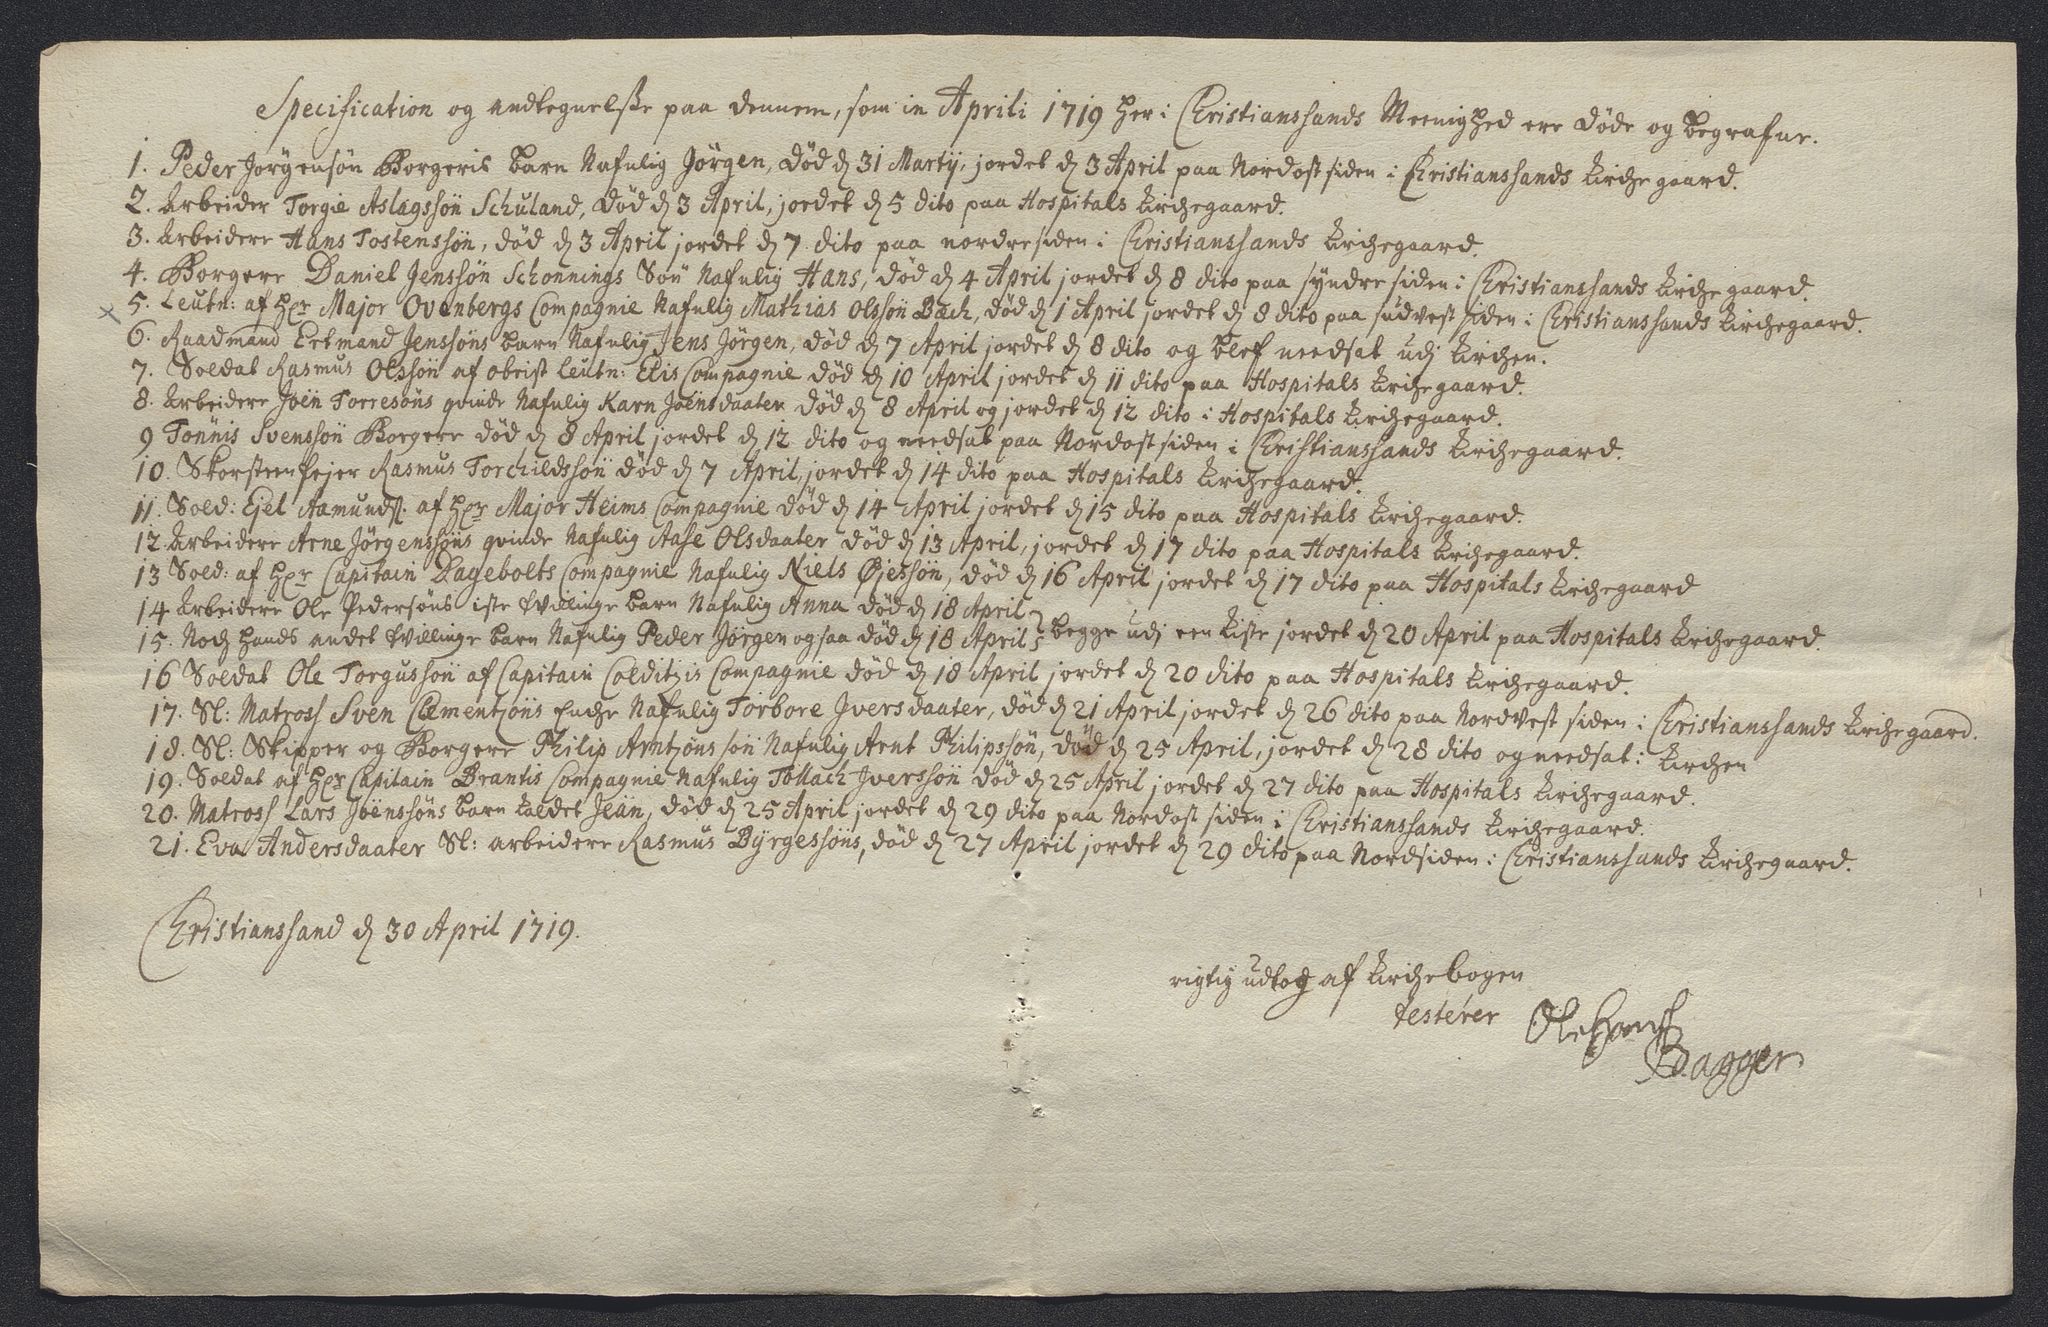 Specification og andtegnelsse paa dennem, som in Aprili 1719 her i Christianssands Meenighed ere döde og begrafne.
1. Peder Jörgensön Borgeris barn Nafnlig Jörgen, död d 31 Martij, jordet d 3 April paa Nordostsiden i Christianssands Kirchegaard.
2. Arbeider Torgie Aslagssön Schuland, död d 3 April, jordet d 5 dito paa Hospitals Kirchegaard.
3. Arbeidere Hans Tostenssön, död d 3 April jordet d 7 dito paa nordresiden i Christianssands Kirchegaard.
4. Borgere Daniel Jenssön Schonnings Sön Nafnlig Hans, död d 4 April jordet d 8 dito paa syndre siden i Christianssands Kirchegaard.
5. Leutn: af Hr Major Ovenbergs Compagnie Nafnlig Mathias Olssön Bach, död d 1 April jordet d 8 dito paa sudvest siden i Christianssands Kirchegaard.
6. Raadmand Ertmand Jenssöns barn Nafnlig Jens Jörgen, död d 7 April jordet d 8 dito og blef needsat udj Kirchen.
7. Soldat Rasmus Olssön af obrist Leutn: Elis Compagnie död d 10 April jordet d 11 dito paa Hospitals Kirchegaard.
8. Arbeidere Joën Torresöns qvinde Nafnlig Karn Joensdaater död d 8 April og jordet d 12 dito i Hospitals Kirchegaard.
9 Tönnis Svenssön Borgere död d 8 April jordet d 12 dito og needsat paa Nordostsiden i Christianssands Kirchegaard.
10. Skorsteenfejer Rasmus Torchildssön död d 7 April, jordet d 14 dito paa Hospitals Kirchegaard.
11. Sold: Ejel Aamunds: af Hr Major Heims Compagnie död d 14 April jordet d 15 dito paa Hospitals Kirchegaard.
12. Arbeidere Arne Jörgenssöns qvinde Nafnlig Aase Olsdaater död d 13 April, jordet d 17 dito paa Hospitals Kirchegaard.
13 Sold: af Hr Capitain Dagebolts Compagnie Nafnlig Niels Øjessön, död d 16 April jordet d 17 dito paa Hospitals Kirchegaard
14 Arbeidere Ole Pedersöns iste tvillinge barn Nafnlig Anna död d 18 April
15. Noch hands andet tvillinge barn Nafnlig Peder Jörgen ogsaa död d 18 April begge udj een Kiste jordet d 20 April paa Hospitals Kirchegaard.
16 Soldat Ole Torgussön af Capitain Colditzis Compagnie död d 18 April jordet d 20 dito paa Hospitals Kirchegaard.
17. Sl: Matross Sven Clementsöns Enche Nafnlig Torbore Jversdaater, död d 21 April jordet d 26 dito paa Nordvest siden i Christianssands Kirchegaard.
18. Sl: Skipper og Borgere Philip Arntzöns sön Nafnlig Arnt Philipssön, död d 25 April, jordet d 28 dito og needsat i Kirchen
19. Soldat af Hr Capitain Brantis Compagnie Nafnlig Tollach Jverssön död d 25 April jordet d 27 dito paa Hospitals Kirchegaard.
20. Matross Lars Joënssöns barn kaldet Jean, död d 25 April jordet d 29 dito paa Nordost siden i Christianssands Kirchegaard.
21. Eva Andersdaater Sl: arbeidere Rasmus Byrgessöns, död d 27 April jordet d 29 dito paa Nordsiden i Christianssands Kirchegaard.
Christianssand d 30 April 1719.
rigtig udtog af Kirchebogen
testerer Ole Hans:
Bagger